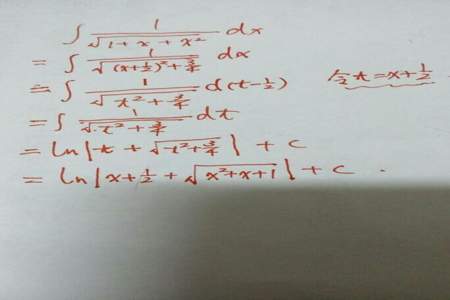 ∫ 1/√(1+x+x²) dx
= ∫ 1/√((x+1/2)²+3/4) dx
= ∫ 1/√(t²+3/4) d(t-1/2) 令t=x+1/2
= ∫ 1/√(t²+3/4) dt
= ln|t+√(t²+3/4)|+c
= ln|x+1/2+√(x²+x+1)|+c.